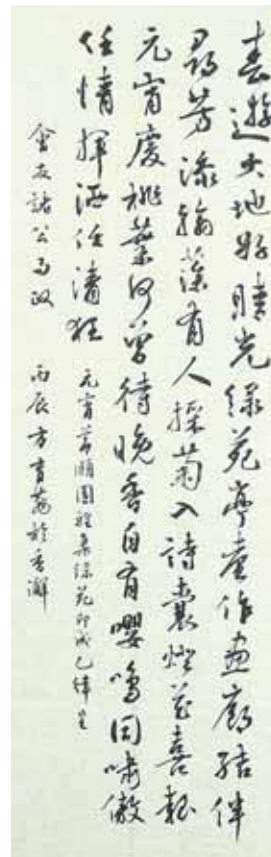 春遊大地好晴光綠苑亭臺作畫廊結伴
尋芳添翰藻有人採菊入詩囊燈花喜報
元宵慶桃葉何曾待晚香自有嚶鳴同嘯傲
任情揮洒任清狂 元宵 園雅集綠苑即成乙律呈
諸公 政 丙辰方 於香